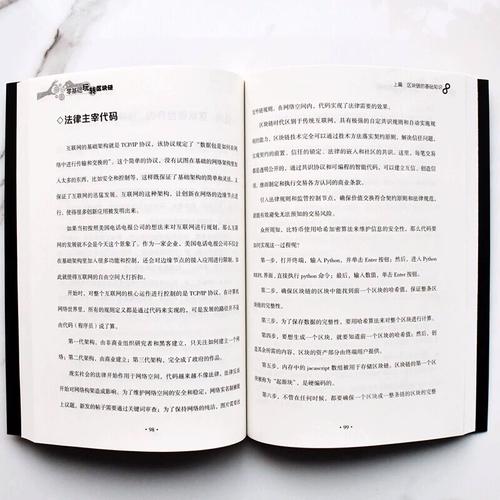 零基础玩转区块链
◇法律主宰代码
互联网的基础架构就是 TCP/IP 协议，该协议规定了“数据包是如何在网
络中进行传输和交换的”。这个简单的协议，没有试图在基础的网络架构里
入太多的东西，比如安全和控制等，这样既保证了基础架构的简单和灵活，
保证了互联网的迅猛发展。互联网的这种架构，让创新在网络的边缘节点
行，使得很多创新应用被发明出来。
如果当初按照美国电话电报公司的想法来对互联网进行规划，那么互
网的发展就不会是今天这个景象了。作为一家企业，美国电话电报公司不
在基础架构里加入很多功能和控制，还会对边缘节点的接入应用进行限制，
此就使得互联网的自由空间大打折扣。
开始时，对整个互联网的核心运作进行控制的是 TCP/IP 协议，在计算
网络世界里，所有的规则定义都是通过代码来实现的，可是发展的路径并不
由代码（程序员）说了算。
第一代架构，由非商业组织研究者和黑客建立，只关注如何建立一个网
络；第二代架构，由商业建立；第三代架构，完全成了政府的作品。
现实社会的法律开始作用于网络空间，代码越来越不像法律，法律反而
对网络构架造成影响。为了维护网络空间的安全和稳定，网络实名制被
上议题，新发的帖子需要通过关键词审查；为了保持网络的纯洁，图片需要经过
· 98 ·
上篇 区块链的基础知识
处硬规则，在网络空间内，代码实现了法律需要的效果。
区块链时代区别于传统互联网，具有极强的自定义共识规则和自动实施规
的能力，区块链技术完全可以通过技术方法落实契约原则，解决信任问题，
实契约的前置、信任的锁定、法律的嵌入和社区的共识。这里，每笔交易
是透明公开的。通过共识协议和可编程的智能代码，可以建立互信、创造信
，继而制定和执行交易各方认同的商业条款。
引入法律规则和监管控制节点，确保价值交换符合契约原则和法律规范，
有效避免无法预知的交易风险。
众所周知，比特币使用哈希加密算法来维护信息的安全性，那么代码要
何实现这一过程呢？
第一步，打开终端，输入 Python，并单击 Enter 按钮；然后，进入 Python
环境，界面，直接执行 python 命令；最后，输入数值，单击 Enter 按钮。
第二步，确保区块链的区块中能找到前一个区块的哈希值，保证整条区
的完整性。
第三步，为了保存数据的完整性，要用哈希算法来对整个区块进行计算。
第四步，要想生成一个区块，就要知道前一个区块的哈希值；然后，创
其余所需的内容，区块的资产部分由终端用户提供。
第五步，内存中的 javascript 数组被用于存储区块链。区块链的第一个区
被称为“起源块”，是硬编码的。
第六步，不管在任何时候，都要确保一个区块或一整条区块链的区块的完整
· 99 ·